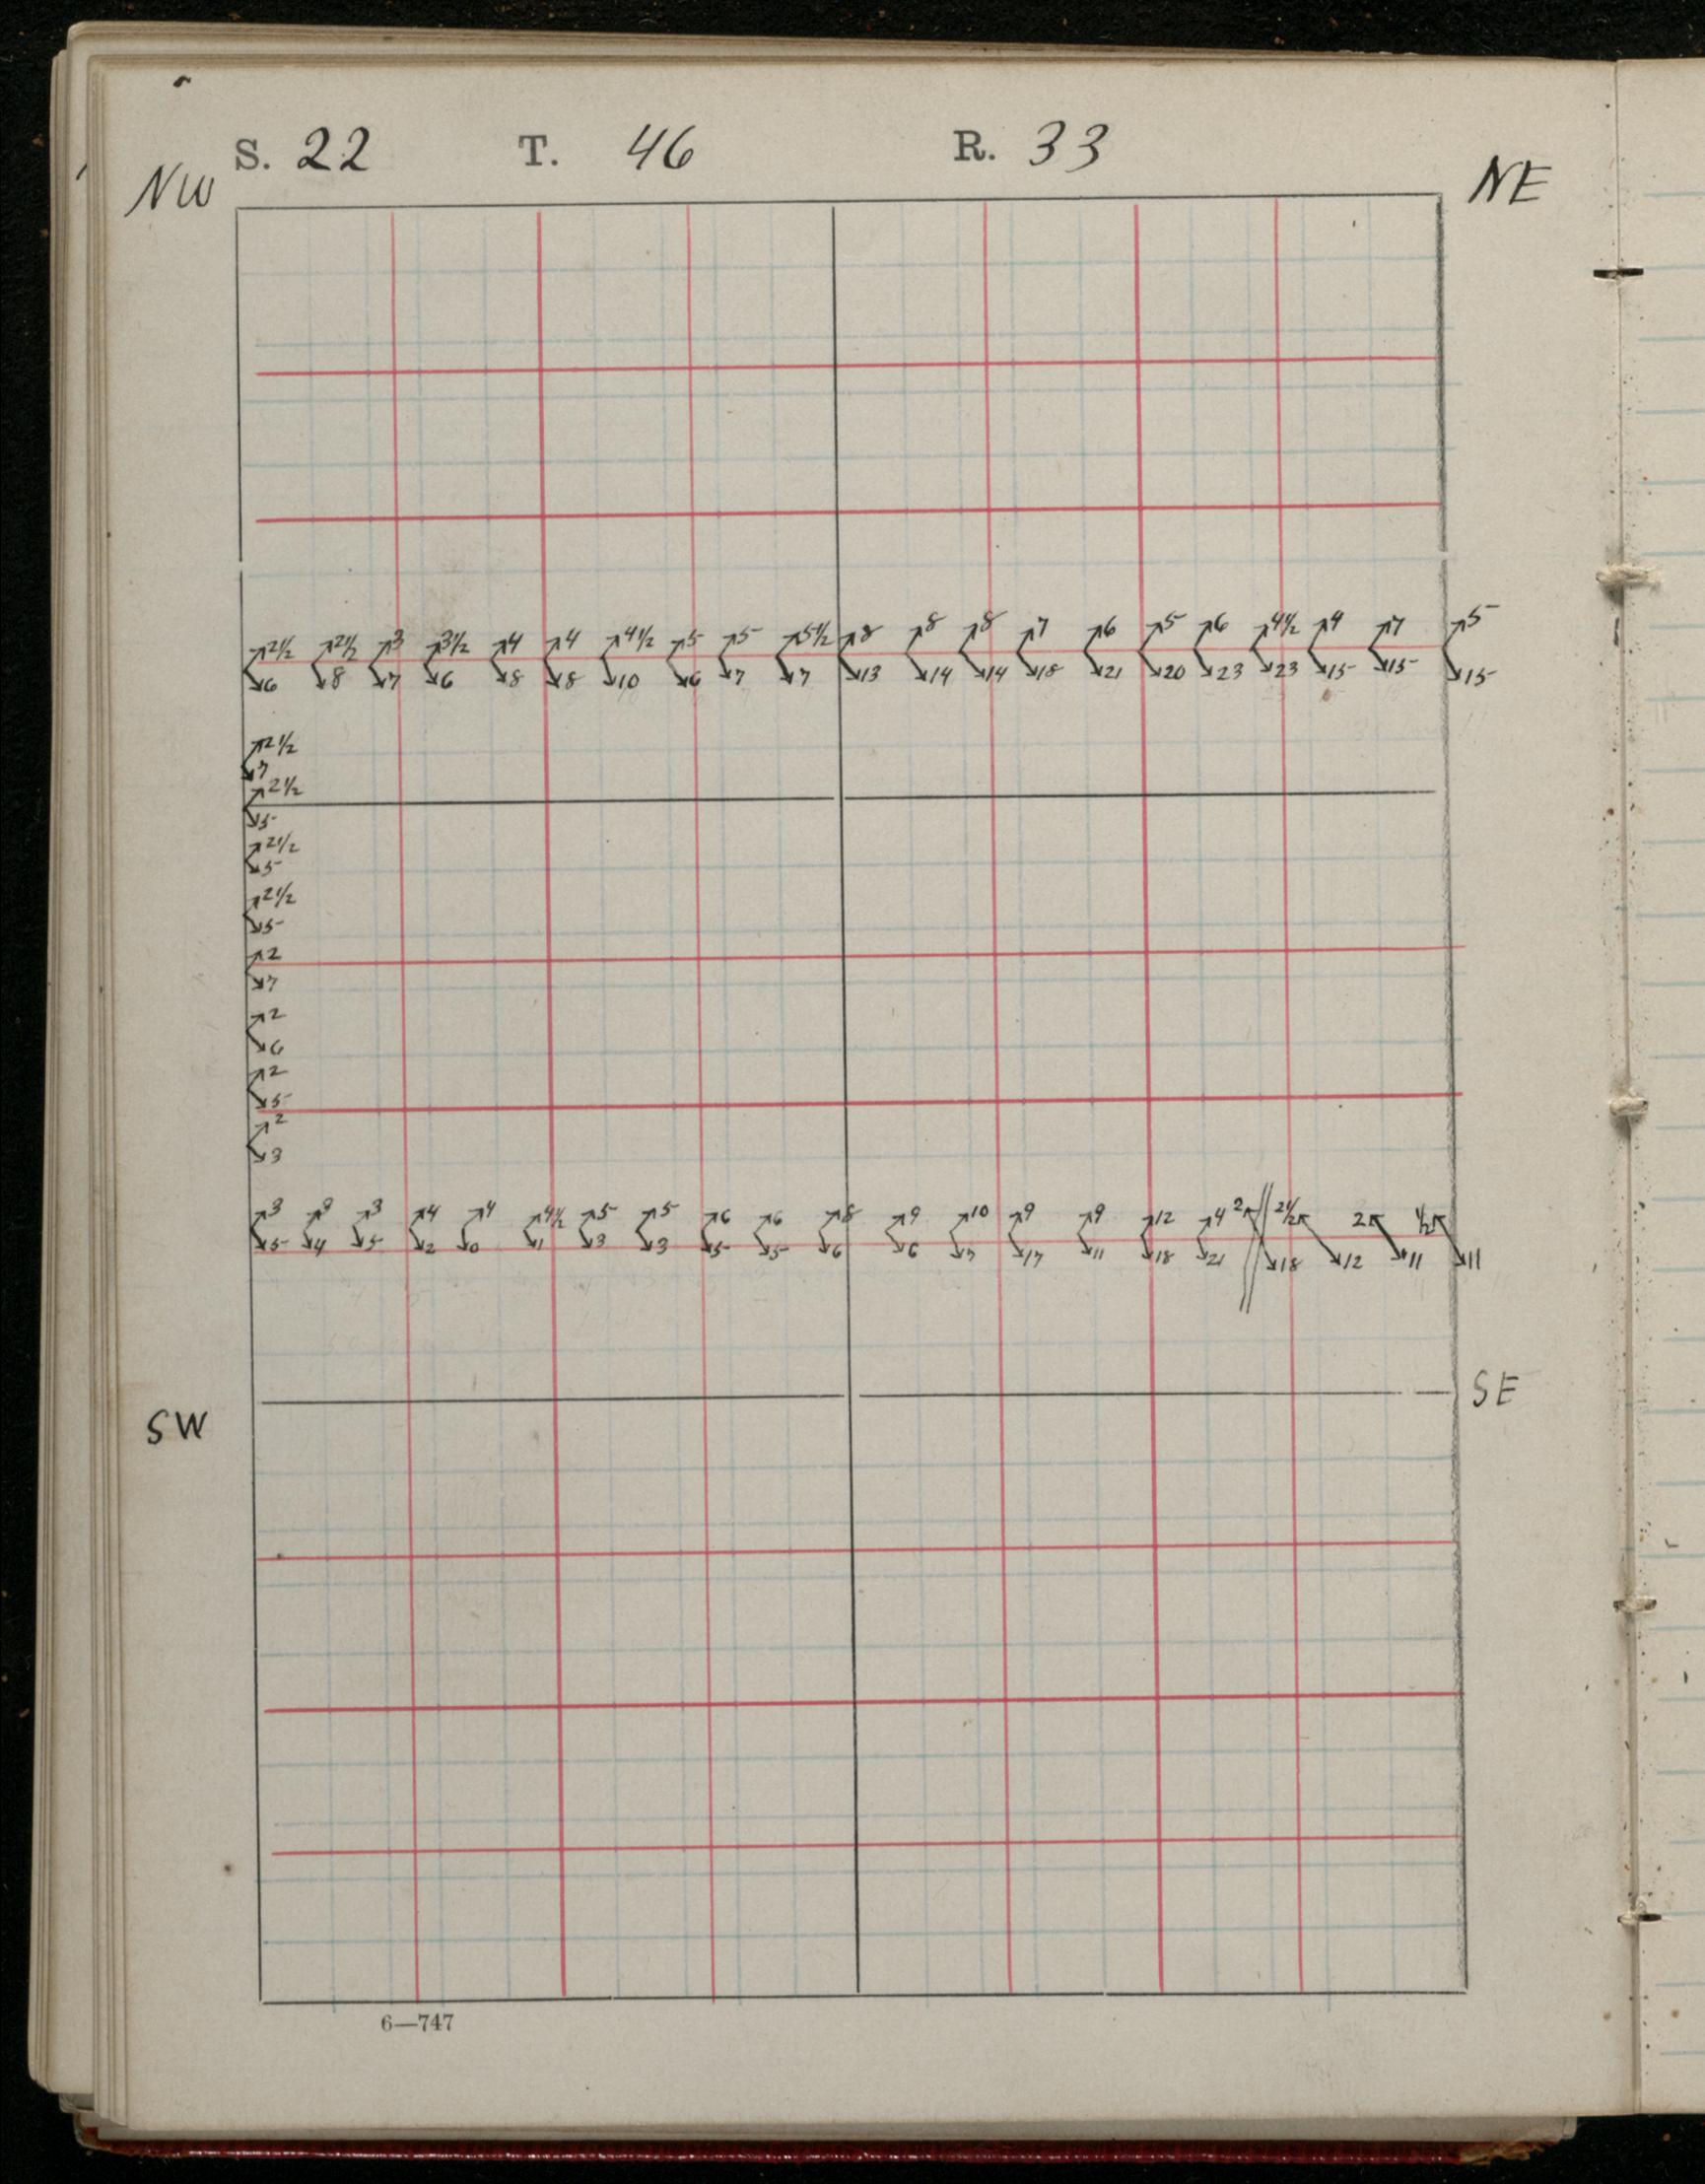 S. 22 T. 46 R. 33
NW NE
2½ 2½ 3 3½ 4 4 4½ 5 5 5½ 8 8 8 7 6 5 6 4½ 4 7 5
6 8 7 6 8 8 10 6 7 7 13 14 14 18 21 20 23 23 15 15 15
2½
7
2½
5
2½
5
2½
5
2
7
2
6
2
5
2
3
3 3 3 4 4 4½ 5 5 6 6 8 9 10 9 9 12 4 2 2½ 2 ½
5 4 5 2 0 1 3 3 5 5 6 6 7 17 11 18 21 18 12 11 11
SW SE
6—747